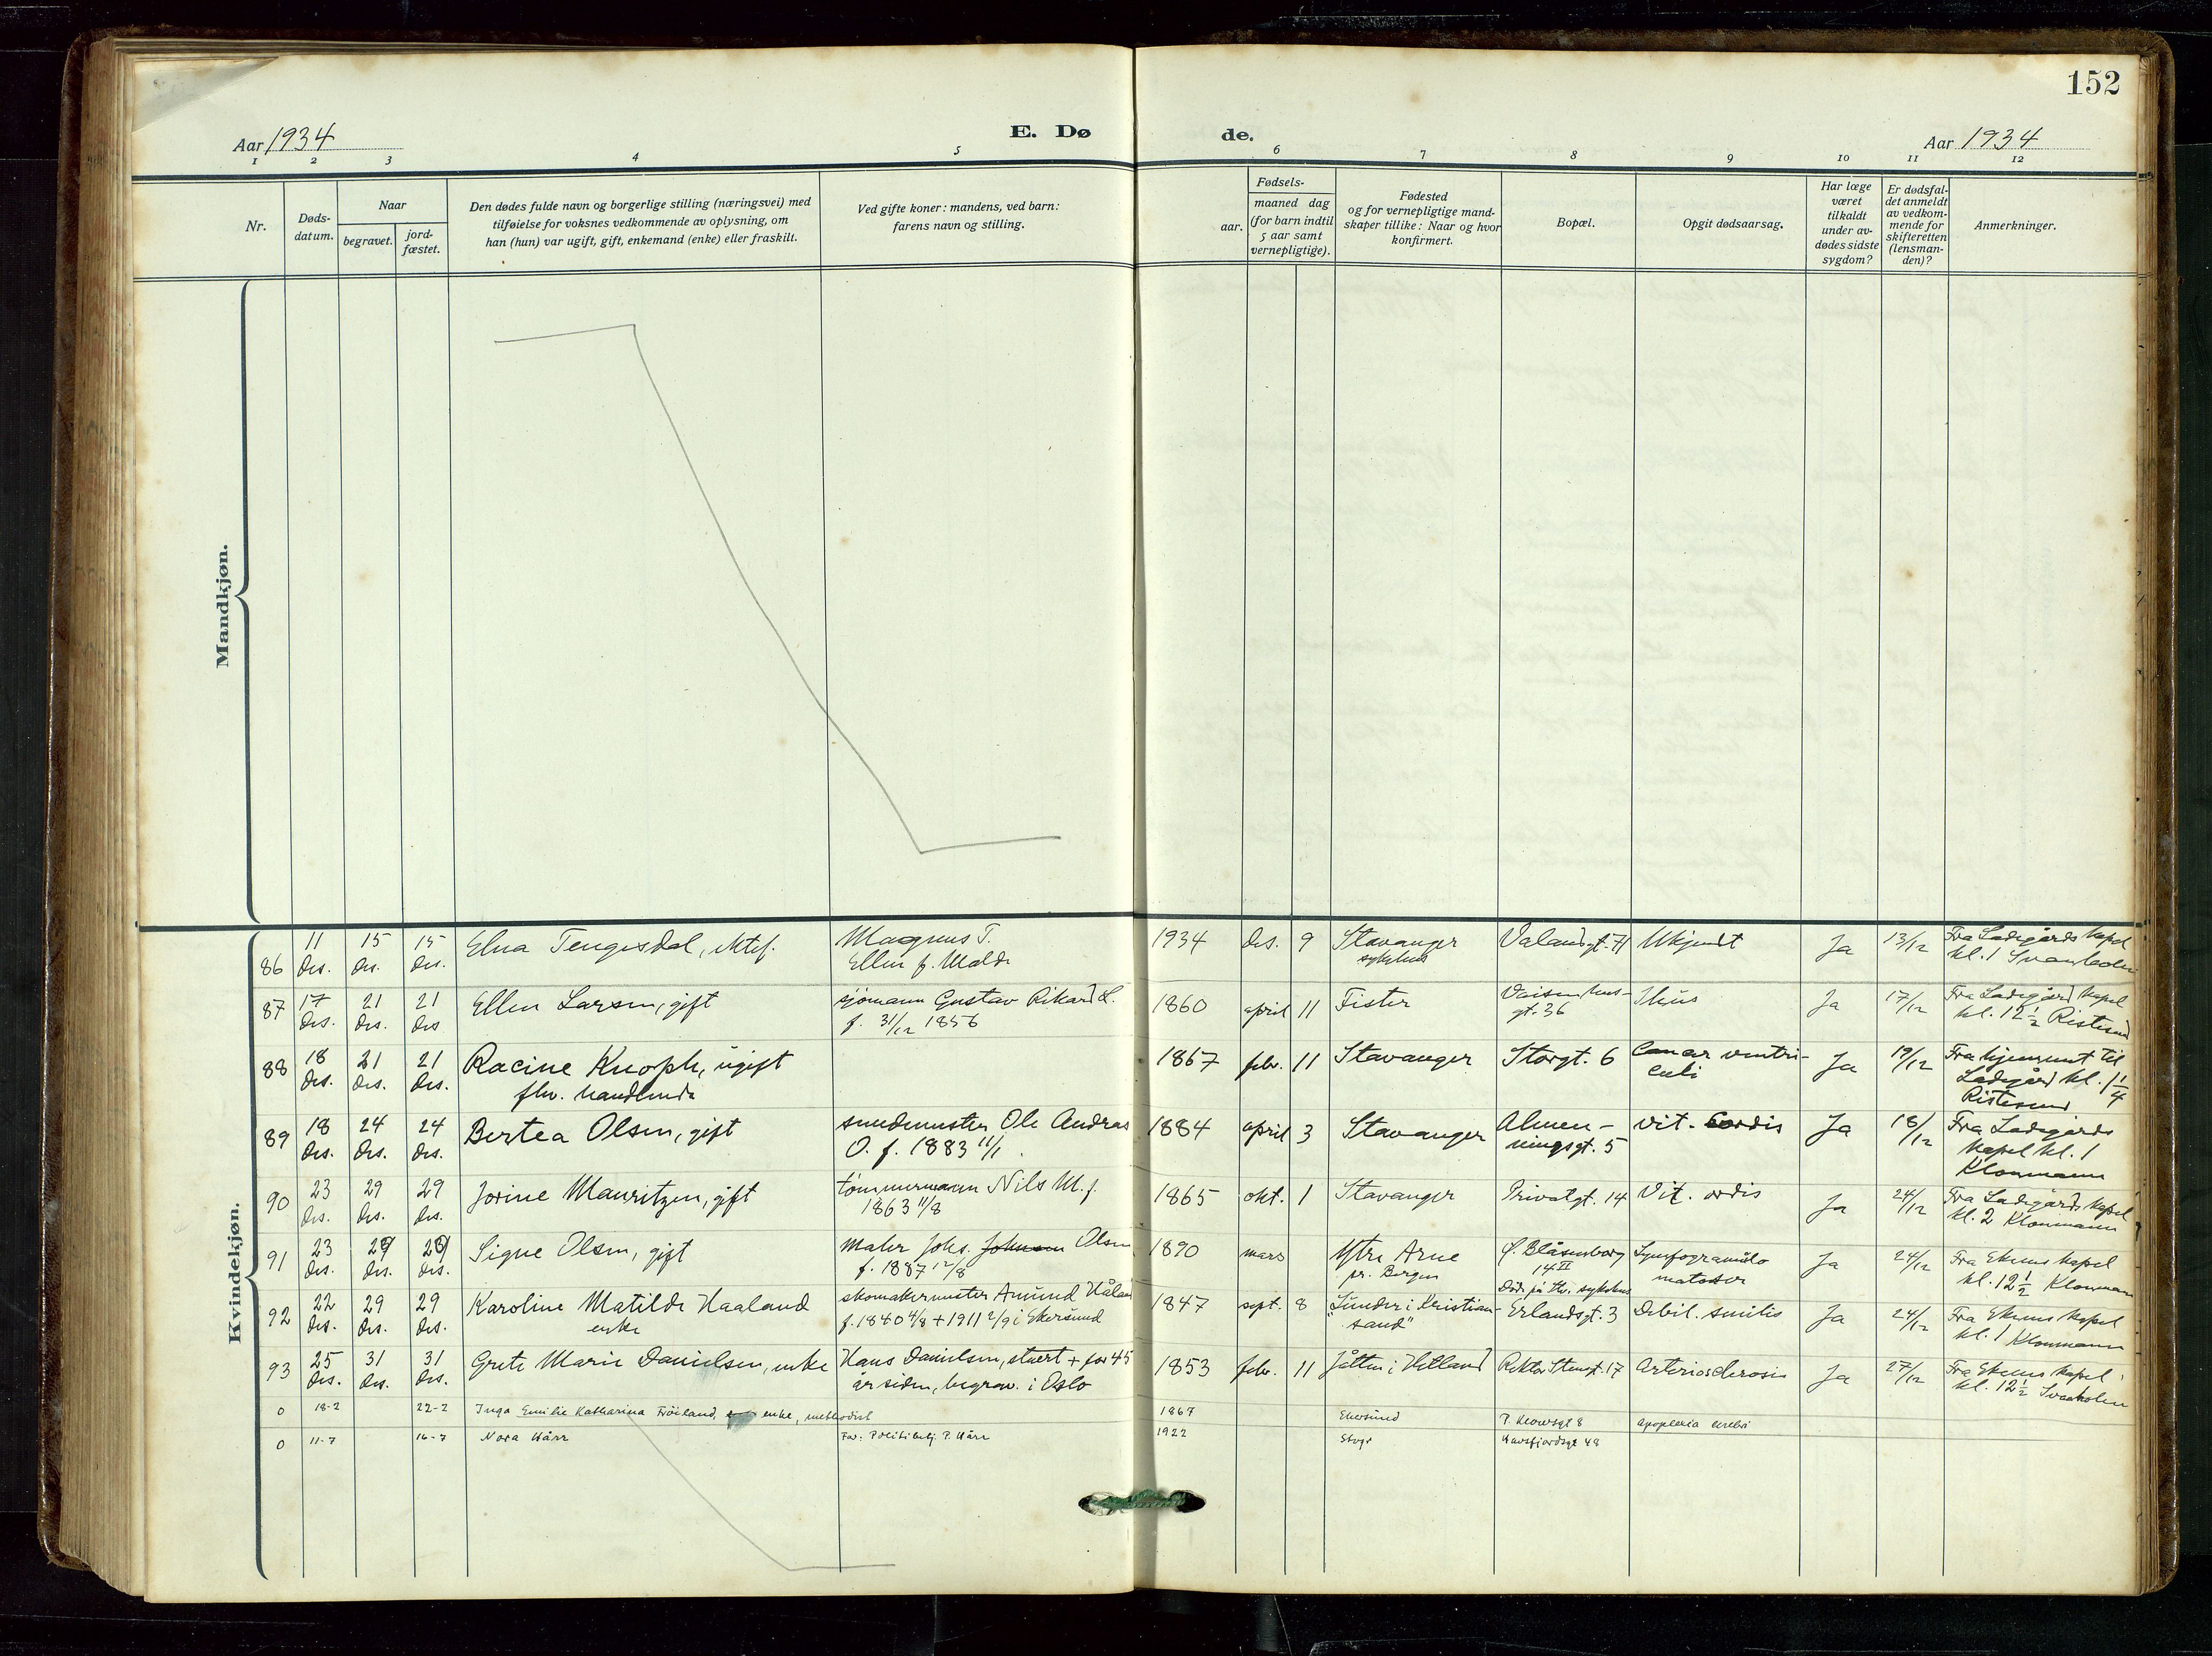 152
Aar 1934
E. Dø
de.
Aar 1934
1 2 3 4 5 6 7 8 9 10 11 12
Nr.
Døds-
datum.
Naar
begravet.
jord-
fæstet.
Den dødes fulde navn og borgerlige stilling (næringsvei) med
tilføielse for voksnes vedkommende av oplysning, om
han (hun) var ugift, gift, enkemand (enke) eller fraskilt.
Ved gifte koner: mandens, ved barn:
farens navn og stilling.
aar.
Fødsels-
maaned dag
(for barn indtil
5 aar samt
vernepligtige).
Fødested
og for vernepligtige mand-
skaper tillike: Naar og hvor
konfirmert.
Bopæl.
Opgit dødsaarsag.
Har læge
været
tilkaldt
under av-
dødes sidste
sygdom?
Er dødsfal-
det anmeldt
av vedkom-
mende for
skifteretten
(lensman-
den)?
Anmerkninger.
Mandkjøn.
Kvindekjøn.
86 11 des. 15 des. 15 des. Elna Tengesdal,
Magnus T.
Ellen f. Malde
1934 des. 9 Stavanger
sykehus
Valandsgt. 71 Ukjendt Ja 13/12 Fra Ladegårds kapel
kl. 1
87 17 des. 21 des. 21 des Ellen Larsen, gift
sjömann Gustav Rikard L.
f. 31/12 1856
1860 april 11 Fister
Vaisenhus-
gt. 36
Ja 17/12 Fra Ladegård kapel
kl. 12½ Ristesund
88 18 des. 21 des. 21 des. Racine Knoph, ugift
fhv. handlende
1867 febr. 11 Stavanger Storgt. 6 Cancer ventri-
culi
Ja 19/12 Fra hjemmet til
Ladegård kl. 1¼
Ristesund
89 18 des. 24 des. 24 des. Bertea Olsen, gift
smedemester Ole Andreas
O. f. 1883 11/1.
1884 april 3 Stavanger Almen-
ningsgt. 5
Vit. Cordis Ja 18/12 Fra Ladegårds
kapel kl. 1
Klonmann
90 23 des. 29 des. 29 des. Jorine Mauritzen, gift
tömmermann Nils M. f.
1863 11/8
1865 okt. 1 Stavanger Privatgt. 14 Vit. cordis Ja 24/12 Fra Ladegårds kapel
kl. 2 Klonmann
91 23 des. 29 des. 29 des. Signe Olsen, gift
Maler Johs. Johnsen Olsen
f. 1887 12/8
1890 mars Ytre Arne
pr. Bergen
Ø. Blåsenborg
14 II
Ja 24/12 Fra Ekenes kapel
kl. 12½ Klonmann
92 22 des. 29 des. 29 des. Karoline Matilde Haaland
enke
skomakermester Amund Håland
f. 1840 4/8 + 1911 2/9 i Ekersund
1847 sept. 8 "Sunder i Kristian-
sand"
Död på Stv. sykehus
Erlandsgt. 3 Debil. senilis Ja 24/12 Fra Ekenes kapel
kl. 1 Klonmann
93 25 des. 31 des. 31 des. Grete Marie Danielsen, enke
Hans Danielsen, stuert + for 45
år siden, begrav. i Oslo
1853 febr. 11 Jåtten i Hetland Rektor Stensgt. 17 Arteriosclerosis Ja 27/12 Fra Ekenes kapel
kl. 12½ Svaaholen
0 18-2 22-2 Inga Emilie Katharina Fröiland, enke, methodist
1867 Ekersund P. Klowsgt 8 apoplexia cerebri
0 11-7 16-7 Nora Hårr
Far: Politibetj. P. Hårr
1922 Stvgr Havsfjordsgt 48